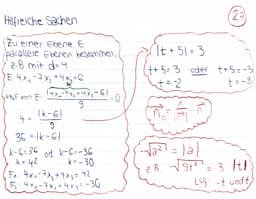 Hilfreiche Sachen
27
Zu einer Ebene E
parallele Ebenen bestimmen
z.B mit d=4
E: 4x₁-7x₂+4x₃=6
HNF von E: |4x₁-7x₂+4x₃-6| / 9 = 0
4 = |k-6| / 9
36 = |k-6|
k-6=36 od k-6=-36
k=42 k=-30
E₁: 4x₁-7x₂+4x₃=42
F₂: 4x₁-7x₂+4x₃=-30
|t+5|=3
t+5=3 oder t+5=-3
t=-2 t=-8
√a² = |a|
z.B √9t² = 3|t|
Lsg -t und t